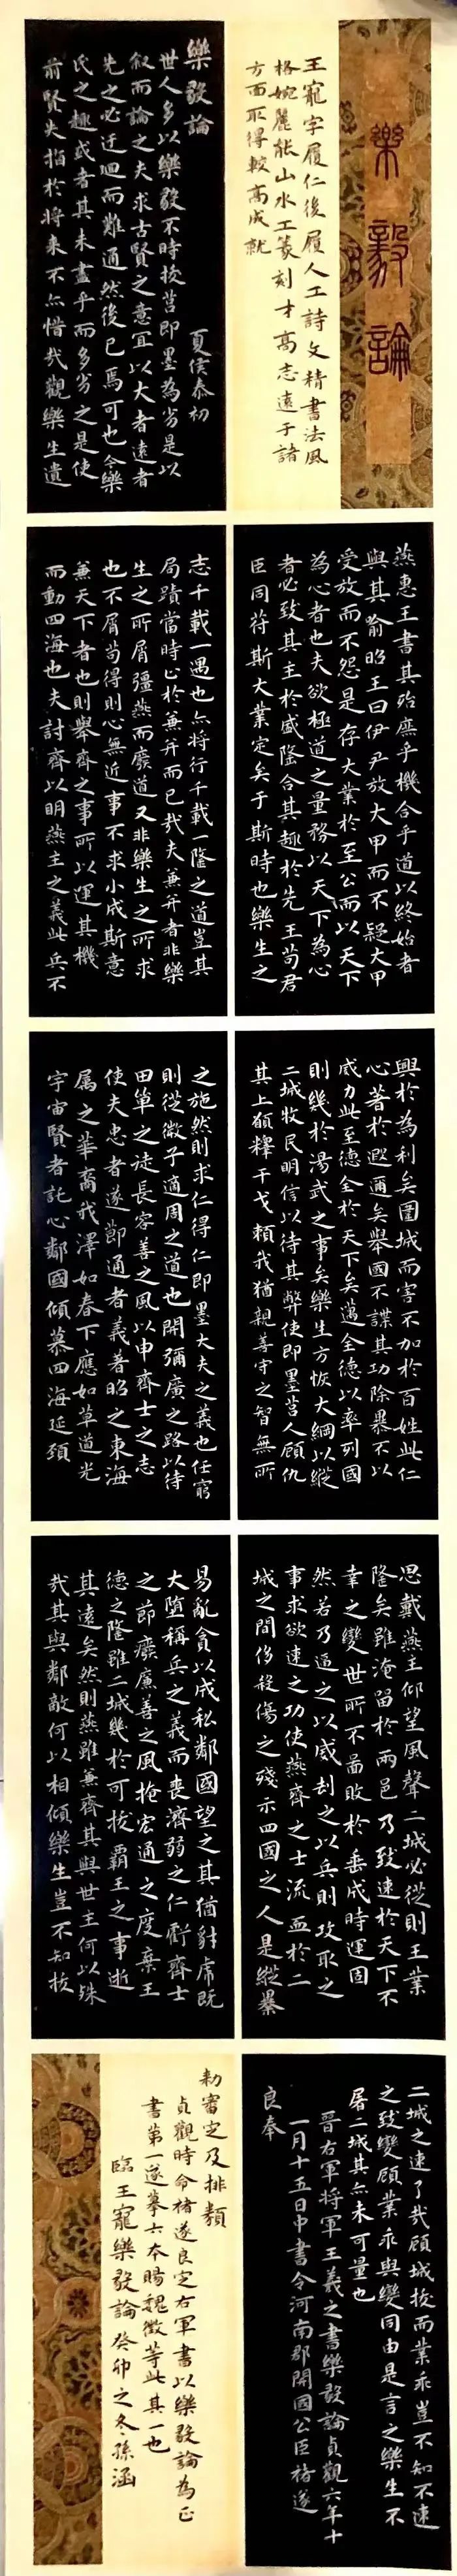 樂毅論
王寵字履仁後履人工詩文精書法風
格婉麗能山水工篆刻才高志遠于諸
方面取得較高成就
樂毅論
夏侯泰初
世人多以樂毅不時拔莒即墨為劣是以
叙而論之夫求古賢之意宜以大者遠者
先之必迂迴而難通然後已焉可也今樂
氏之趣或者其未盡乎而多劣之是使
前賢失指於將来不亦惜哉觀樂生遺
燕惠王書其殆庶乎機合乎道以終始者
與其喻昭王曰伊尹放大甲而不疑大甲
受放而不怨是存大業於至公而以天下
為心者也夫欲極道之量務以天下為心
者必致其主於盛隆合其趣於先王苟君
臣同符斯大業定矣于斯時也樂生之
志千載一遇也亦将行千載一隆之道豈其
局蹟當時止於兼并而已哉夫兼并者非樂
生之所屑彊燕而廢道又非樂生之所求
也不屑苟得則心無近事不求小成斯意
兼天下者也則舉齊之事所以運其機
而動四海也夫討齊以明燕主之義此兵不
興於為利矣圍城而害不加於百姓此仁
心著於遐邇矣舉國不謀其功除暴不以
威力此至德全於天下矣邁全德以率列國
則幾於湯武之事矣樂生方恢大綱以縱
二城牧民明信以待其弊使即墨莒人顧仇
其上願釋干戈賴我猶親善守之智無所
之施然則求仁得仁即墨大夫之義也任窮
則從微子適周之道也開彌廣之路以待
田單之徒長容善之風以申齊士之志
使夫忠者遂節通者義著昭之東海
属之華裔我澤如春下應如草道光
宇宙賢者託心鄰國傾慕四海延頚
思戴燕主仰望風聲二城必從則王業
隆矣雖淹留於兩邑乃致速於天下不
幸之變世所不啚敗於垂成時運固
然若乃逼之以威刦之以兵則攻取之
事求欲速之功使燕齊之士流血於二
城之間侈殺傷之殘示四國之人是縱暴
易亂貪以成私鄰國望之其猶豺虎既
大堕稱兵之義而喪濟弱之仁虧齊士
之節廢廉善之風掩宏通之度棄王
德之隆雖二城幾於可拔霸王之事逝
其遠矣然則燕雖兼齊其與世主何以殊
哉其與鄰敵何以相傾樂生豈不知拔
二城之速了哉顧城拔而業乖豈不知不速
之致變顧業乖與變同由是言之樂生不
屠二城其亦未可量也
晉右軍将軍王羲之書樂毅論貞觀六年十
一月十五日中書令河南郡開國公臣褚遂
良奉
勑審定及排類
貞觀時命褚遂良定右軍書以樂毅論為正
書第一遂摹六本賜魏徵等此其一也
臨王寵樂毅論癸卯之冬孫涵